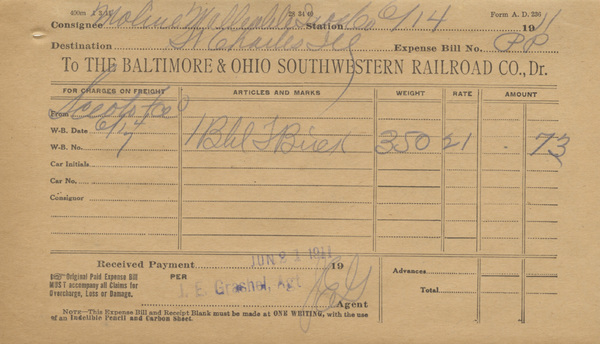 400m 1 5 10 28 34 49 Form A. D. 236
Consignee Moline Malleable Iron Co Station 6/14 1911
Destination St Charles Ill Expense Bill No. PP
To THE BALTIMORE & OHIO SOUTHWESTERN RAILROAD CO., Dr.
FOR CHARGES ON FREIGHT ARTICLES AND MARKS WEIGHT RATE AMOUNT
From
W-B. Date 6/17
W-B. No. 1 Bbl F Brick 350 21 . 73
Car Initials
Car No.
Consignor
Received Payment 19
JUN 1911
Original Paid Expense Bill
MUST accompany all Claims for
Overcharge, Loss or Damage.
PER
J. E. Agt
Agent
Advances
Total
NOTE—This Expense Bill and Receipt Blank must be made at ONE WRITING, with the use
of an Indelible Pencil and Carbon Sheet.